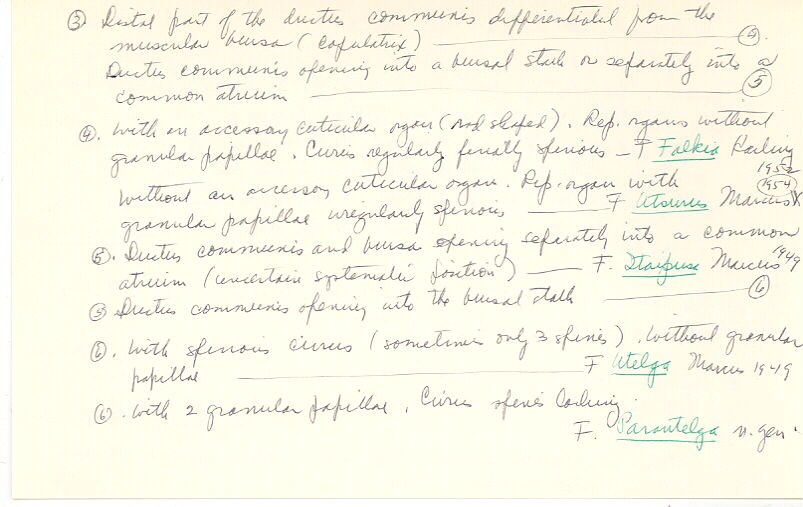 ③ Distal part of the ductus communis differentiated from the
muscular bursa (copulatrix) ④
Ductus communis opening into a bursal stalk or separately into a
common atrium ⑤
④. With an accessory cuticular organ (rod shaped). Rep. organs without
granular papillae. Cirrus regularly finally spinous — F Falkia
1952
Without an accessory cuticular organ. Rep. organ with (1954)
granular papillae irregularly spinous — F Utsurus Marcus
⑤. Ductus communis and bursa opening separately into a common
atrium (uncertain systematic position) — F. Itaipusa Marcus 1949
⑤ Ductus communis opening into the bursal stalk ⑥
⑥. With spinous cirrus (sometimes only 3 spines). Without granular
papillae F Utelga Marcus 1949
⑥. With 2 granular papillae, Cirrus spines lacking.
F. Parautelga n. gen.